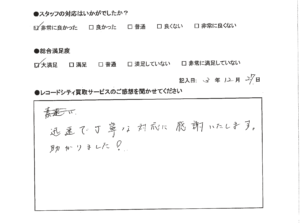 ●スタッフの対応はいかがでしたか？
☑非常に良かった □良かった □普通 □良くない □非常に良くない
●総合満足度
☑大満足 □満足 □普通 □満足していない □非常に満足していない
記入日: 2年12月27日
●レコードシティ買取サービスのご感想を聞かせてください
迅速で丁寧な対応に感謝いたします。
助かりました！